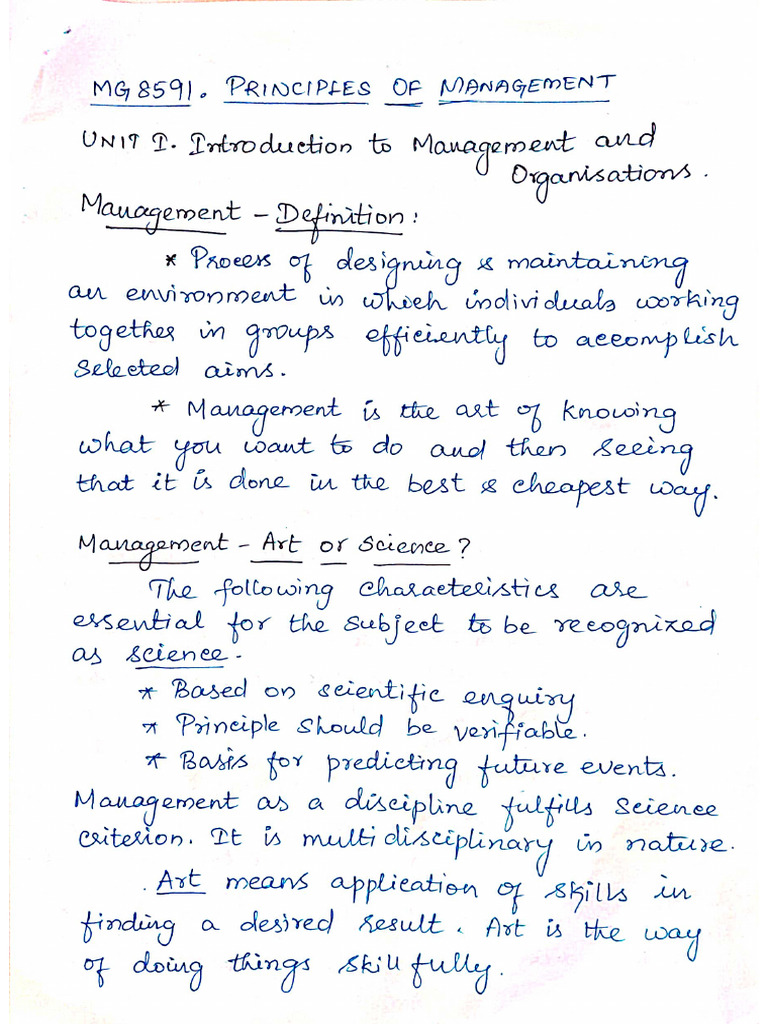 MG8591. PRINCIPLES OF MANAGEMENT
UNIT I. Introduction to Management and
Organisations.
Management - Definition:
* Process of designing & maintaining
an environment in which individuals working
together in groups efficiently to accomplish
selected aims.
* Management is the art of knowing
what you want to do and then seeing
that it is done in the best & cheapest way.
Management - Art or Science?
The following characteristics are
essential for the subject to be recognized
as science.
* Based on scientific enquiry
* Principle should be verifiable.
* Basis for predicting future events.
Management as a discipline fulfills science
criterion. It is multidisciplinary in nature.
. Art means application of skills in
finding a desired result. Art is the way
of doing things skillfully.